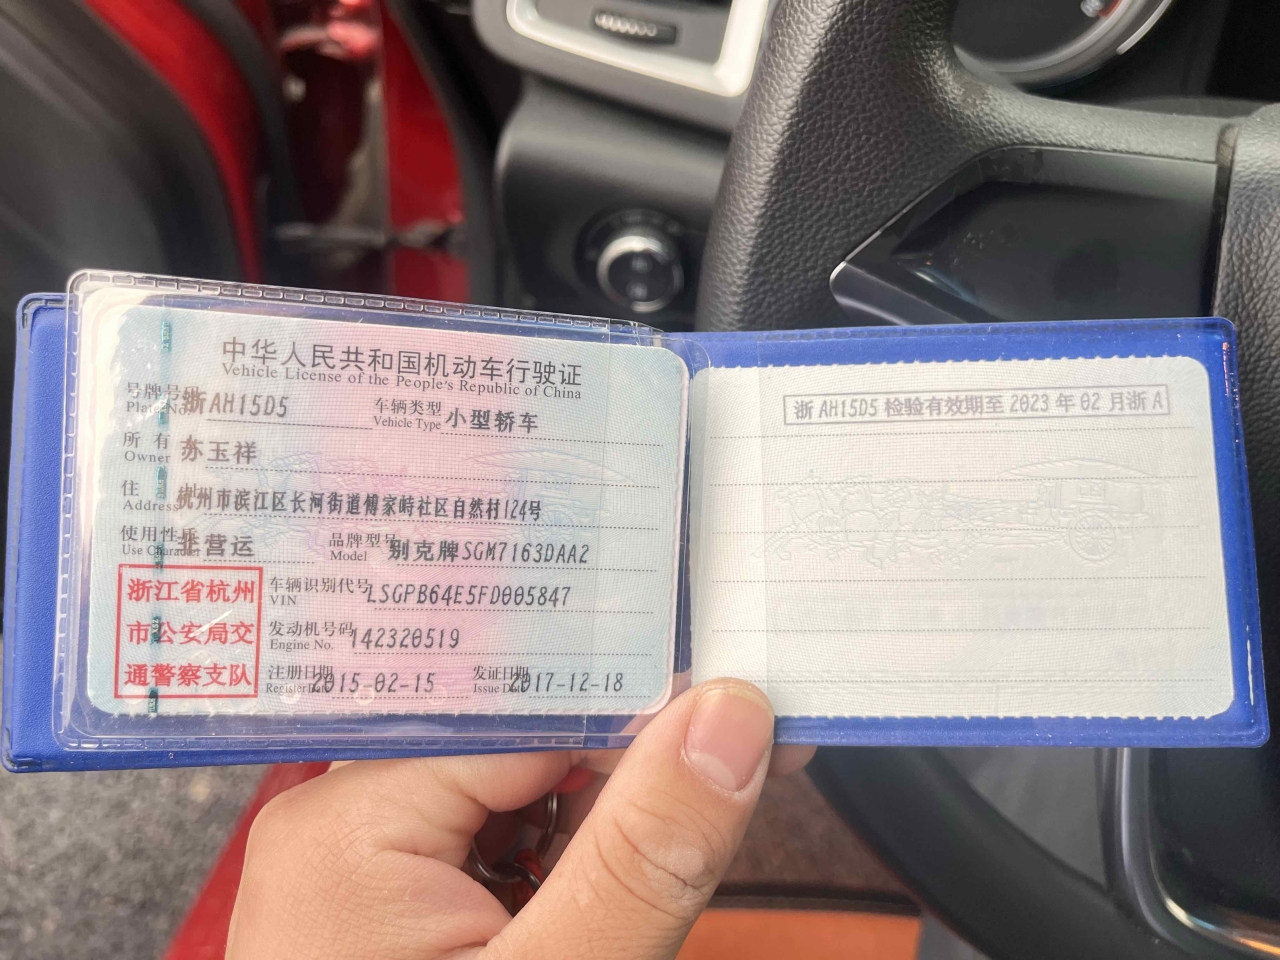 中华人民共和国机动车行驶证
Vehicle License of the People's Republic of China
号牌号码 浙AH15D5 车辆类型 小型轿车
Plate No. Vehicle Type
所有人 苏玉祥
Owner
住址 杭州市滨江区长河街道傅家峙社区自然村124号
Address
使用性质 非营运 品牌型号 别克牌SGM7163DAA2
Use Character Model
浙江省杭州
市公安局交
通警察支队
车辆识别代号 LSGPB64E5FD005847
VIN
发动机号码 142320519
Engine No.
注册日期 2015-02-15 发证日期 2017-12-18
Register Date Issue Date
浙AH15D5检验有效期至2023年02月浙A